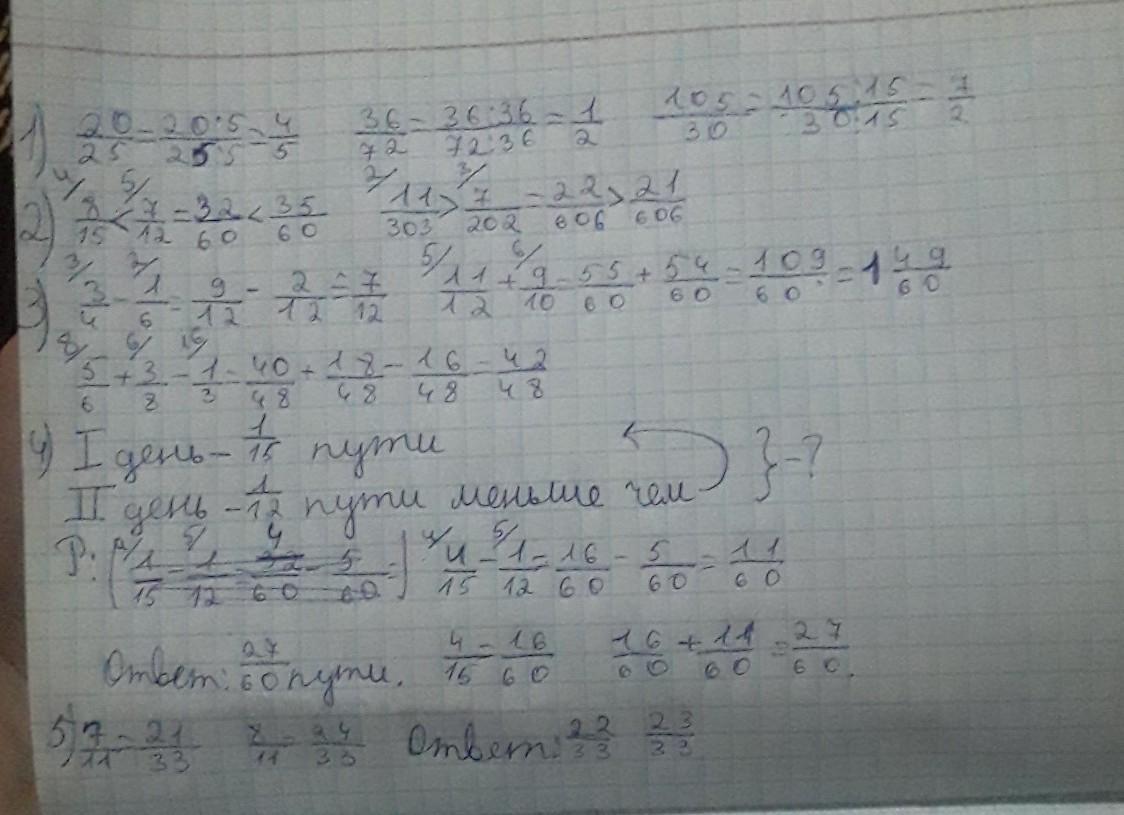 1) 20/25 = 20:5/25:5 = 4/5 36/72 = 36:36/72:36 = 1/2 105/30 = 105:15/30:15 = 7/2
2) 4/ 8/15 < 5/ 7/12 = 32/60 < 35/60 2/ 11/303 > 3/ 7/202 = 22/606 > 21/606
3) 3/ 3/4 - 2/ 1/6 = 9/12 - 2/12 = 7/12 5/ 11/12 + 6/ 9/10 = 55/60 + 54/60 = 109/60 = 1 49/60
8/ 5/6 + 6/ 3/8 - 16/ 1/3 = 40/48 + 18/48 - 16/48 = 42/48
4) I день - 1/15 пути
II день - 1/12 пути меньше чем } - ?
Р: ( 1/15 - 5/ 1/12 = 4/60 - 5/60 = ) 4/ 4/15 - 5/ 1/12 = 16/60 - 5/60 = 11/60
Ответ: 27/60 пути. 4/15 = 16/60 16/60 + 11/60 = 27/60.
5) 7/11 = 21/33 8/11 = 24/33 Ответ: 22/33 23/33